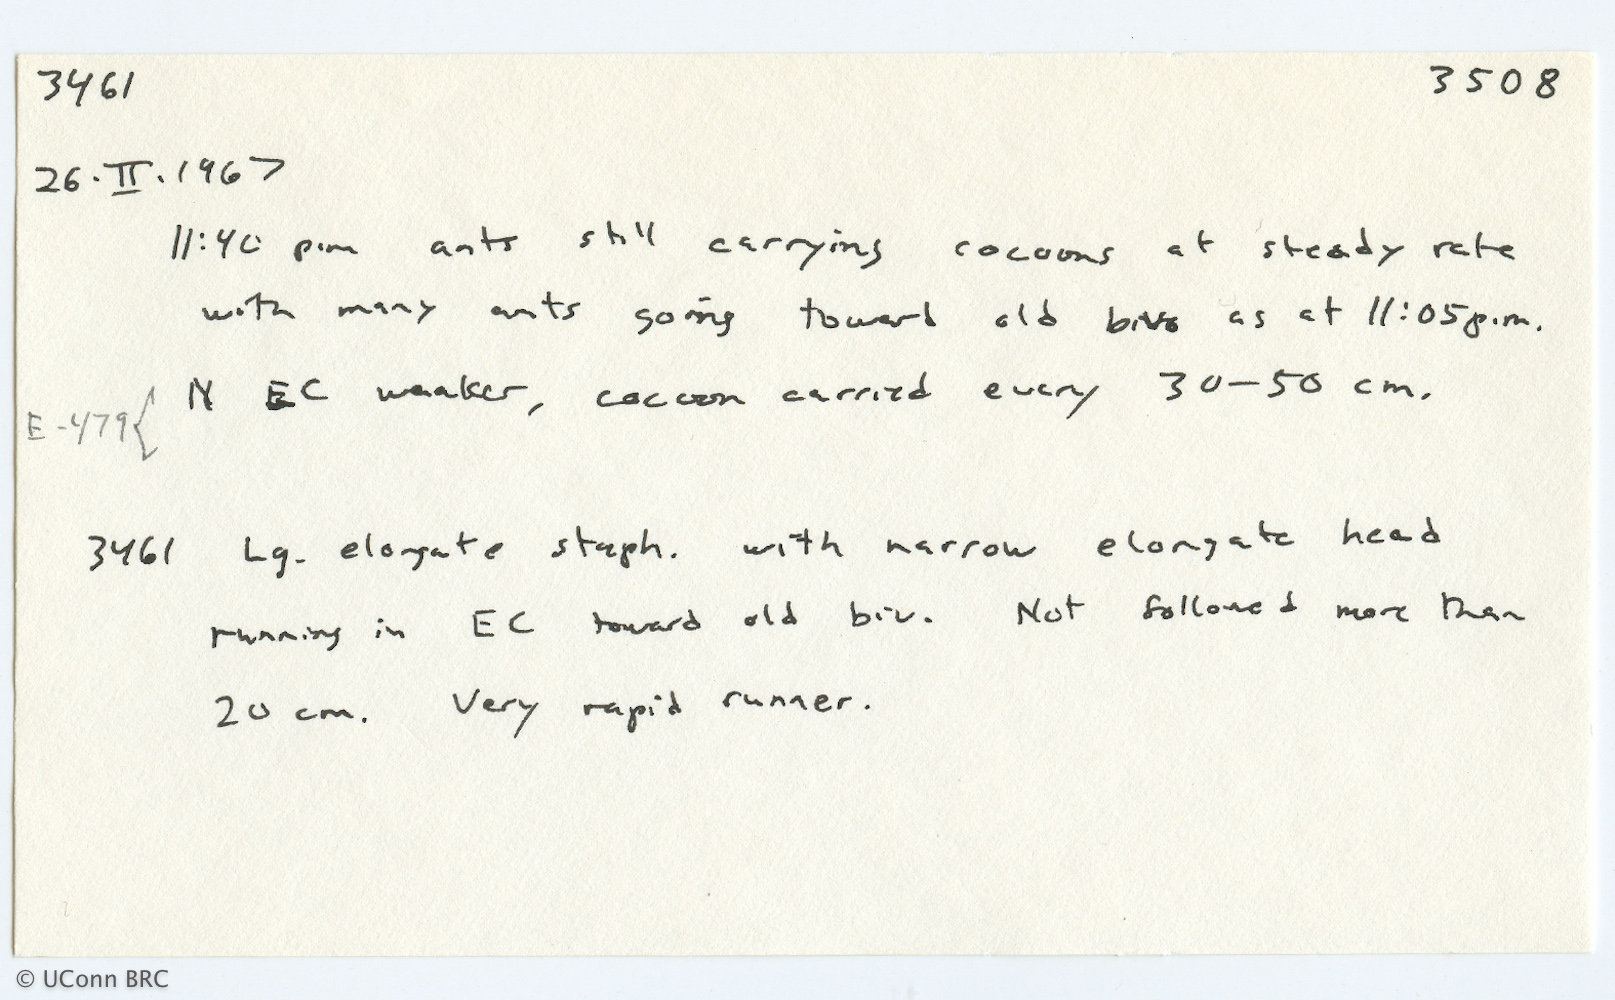 3461 3508
26.II.1967
11:40 p.m. ants still carrying cocoons at steady rate
with many ants going toward old biv. as at 11:05 p.m.
N EC weaker, cocoon carried every 30-50 cm.
E-479
3461 Lg. elongate staph. with narrow elongate head
running in EC toward old biv. Not followed more than
20 cm. Very rapid runner.
© UConn BRC